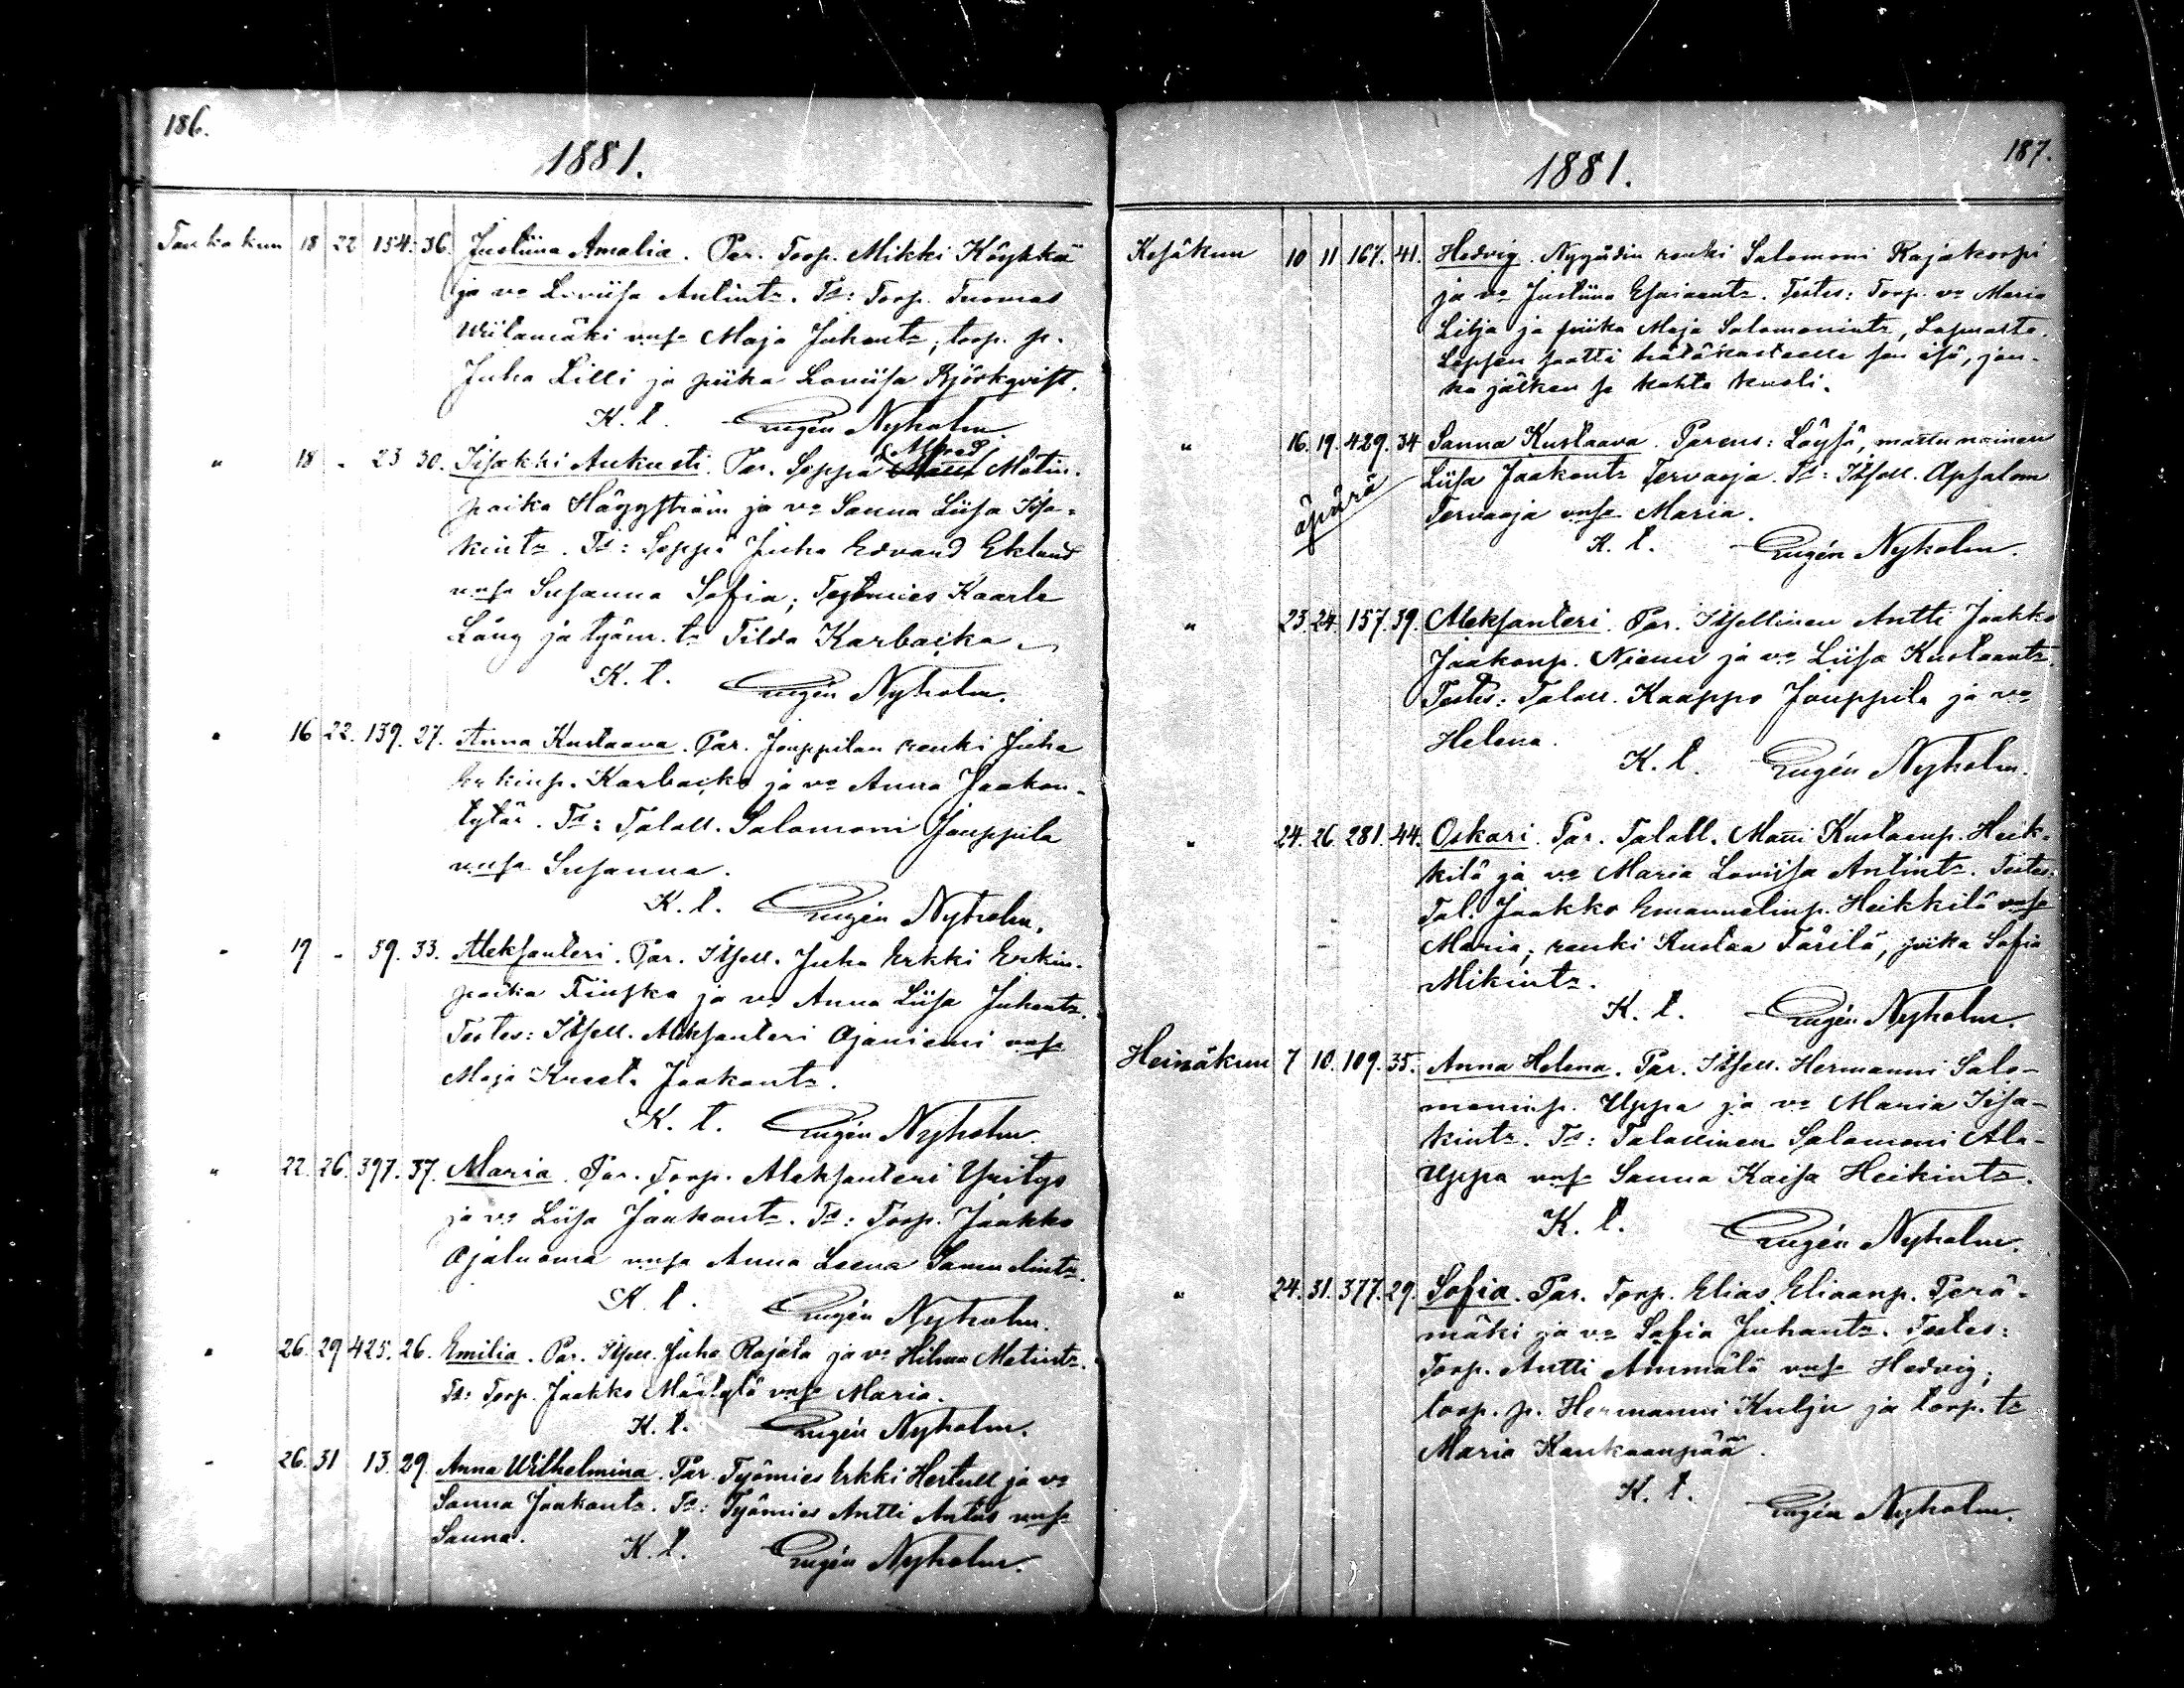 186.
1881.
Toukokuu 18 22 154. 36. Justiina Amalia. Par. Torp. Mikki Köykkä
ja vo Loviisa Antintr. Ts: Torp. Tuomas
Wiitamäki vnsa Maja Juhontr, torp. p.
Juha Lilli ja piika Loviisa Björkqvist.
K. t. Eugén Nyholm.
Alfred
" 18 " 23 30. Iisakki Aukusti. Par. Seppä Matin-
poika Häggström ja vo Sanna Liisa Iisa-
kintr. Ts: Seppä Juha Edvard Eklund
vnsa Susanna Sofia; Työmies Kaarle
Lång ja työm. tr Tilda Karbacka
K. t. Eugén Nyholm.
" 16 22. 139. 27. Anna Kustaava. Par. Jouppilan renki Juha
Erkinp. Karbacka ja vo Anna Jaakon-
tytär. Ts: Taloll. Salomoni Jouppila
vnsa Susanna.
K. t. Eugén Nyholm.
" 19 " 59. 33. Aleksanteri. Par. Itsell. Juha Erkki Erkin-
poika Finska ja vo Anna Liisa Juhontr.
Testes: Itsell. Aleksanteri Ojaniemi vnsa
Maja Kreeta Jaakontr.
K. t. Eugén Nyholm.
" 22. 26. 397. 37. Maria. Par. Torp. Aleksanteri Yritys
ja vo Liisa Jaakontr. Ts: Torp. Jaakko
Ojaluoma vnsa Anna Leena Samuelintr.
K. t. Eugén Nyholm.
" 26. 29 425. 26. Emilia. Par. Itsell. Juha Rajala ja vo Hilma Matintr.
Ts: Torp. Jaakko Mäntylä vnsa Maria.
K. t. Eugén Nyholm.
" 26. 31 13. 29. Anna Wilhelmina. Par. Työmies Erkki Hertull ja vo
Sanna Jaakontr. Ts: Työmies Antti Antus vnsa
Sanna. K. t. Eugén Nyholm.
187.
1881.
Kesäkuu 10 11 167. 41. Hedvig. Nygårdin renki Salomoni Rajakorpi
ja vo Justiina Esaiaantr. Testes: Torp. vo Maria
Lilja ja piika Maja Salomonintr, Lapualta.
Lapsen saatti hätäkasteelle sen isä, jon-
ka jälkeen se kohta kuoli.
" 16. 19. 429. 34 Sanna Kustaava. Parens: Löysä, maatunainen
äpärä
Liisa Jaakontr Tervaoja. Ts: Itsell. Apsalom
Tervaoja vnsa Maria.
K. t. Eugén Nyholm.
" 23. 24. 157. 39. Aleksanteri. Par. Itsellinen Antti Jaakko
Jaakonp. Niemi ja vo Liisa Kustaantr.
Testes: Taloll. Kaappo Jouppila ja vo
Helena.
K. t. Eugén Nyholm.
" 24. 26 281. 44. Oskari. Par. Taloll. Matti Kustaanp. Heik-
kilä ja vo Maria Loviisa Antintr. Testes:
Tal. Jaakko Emanuelinp. Heikkilä vnsa
Maria; renki Kustaa Färilä, piika Sofia
Mikintr.
K. t. Eugén Nyholm.
Heinäkuu 7 10. 109. 35. Anna Helena. Par. Itsell. Hermanni Salo-
moninp. Uppa ja vo Maria Iisa-
kintr. Ts: Talollinen Salomoni Ala-
Uppa vnsa Sanna Kaisa Heikintr.
K. t. Eugén Nyholm.
" 24. 31. 377. 29. Sofia. Par. Torp. Elias Eliaanp. Perä-
mäki ja vo Sofia Juhantr. Testes:
Torp. Antti Ammälä vnsa Hedvig;
torp. p. Hermanni Kulju ja torp. tr
Maria Kankaanpää.
K. t. Eugén Nyholm.